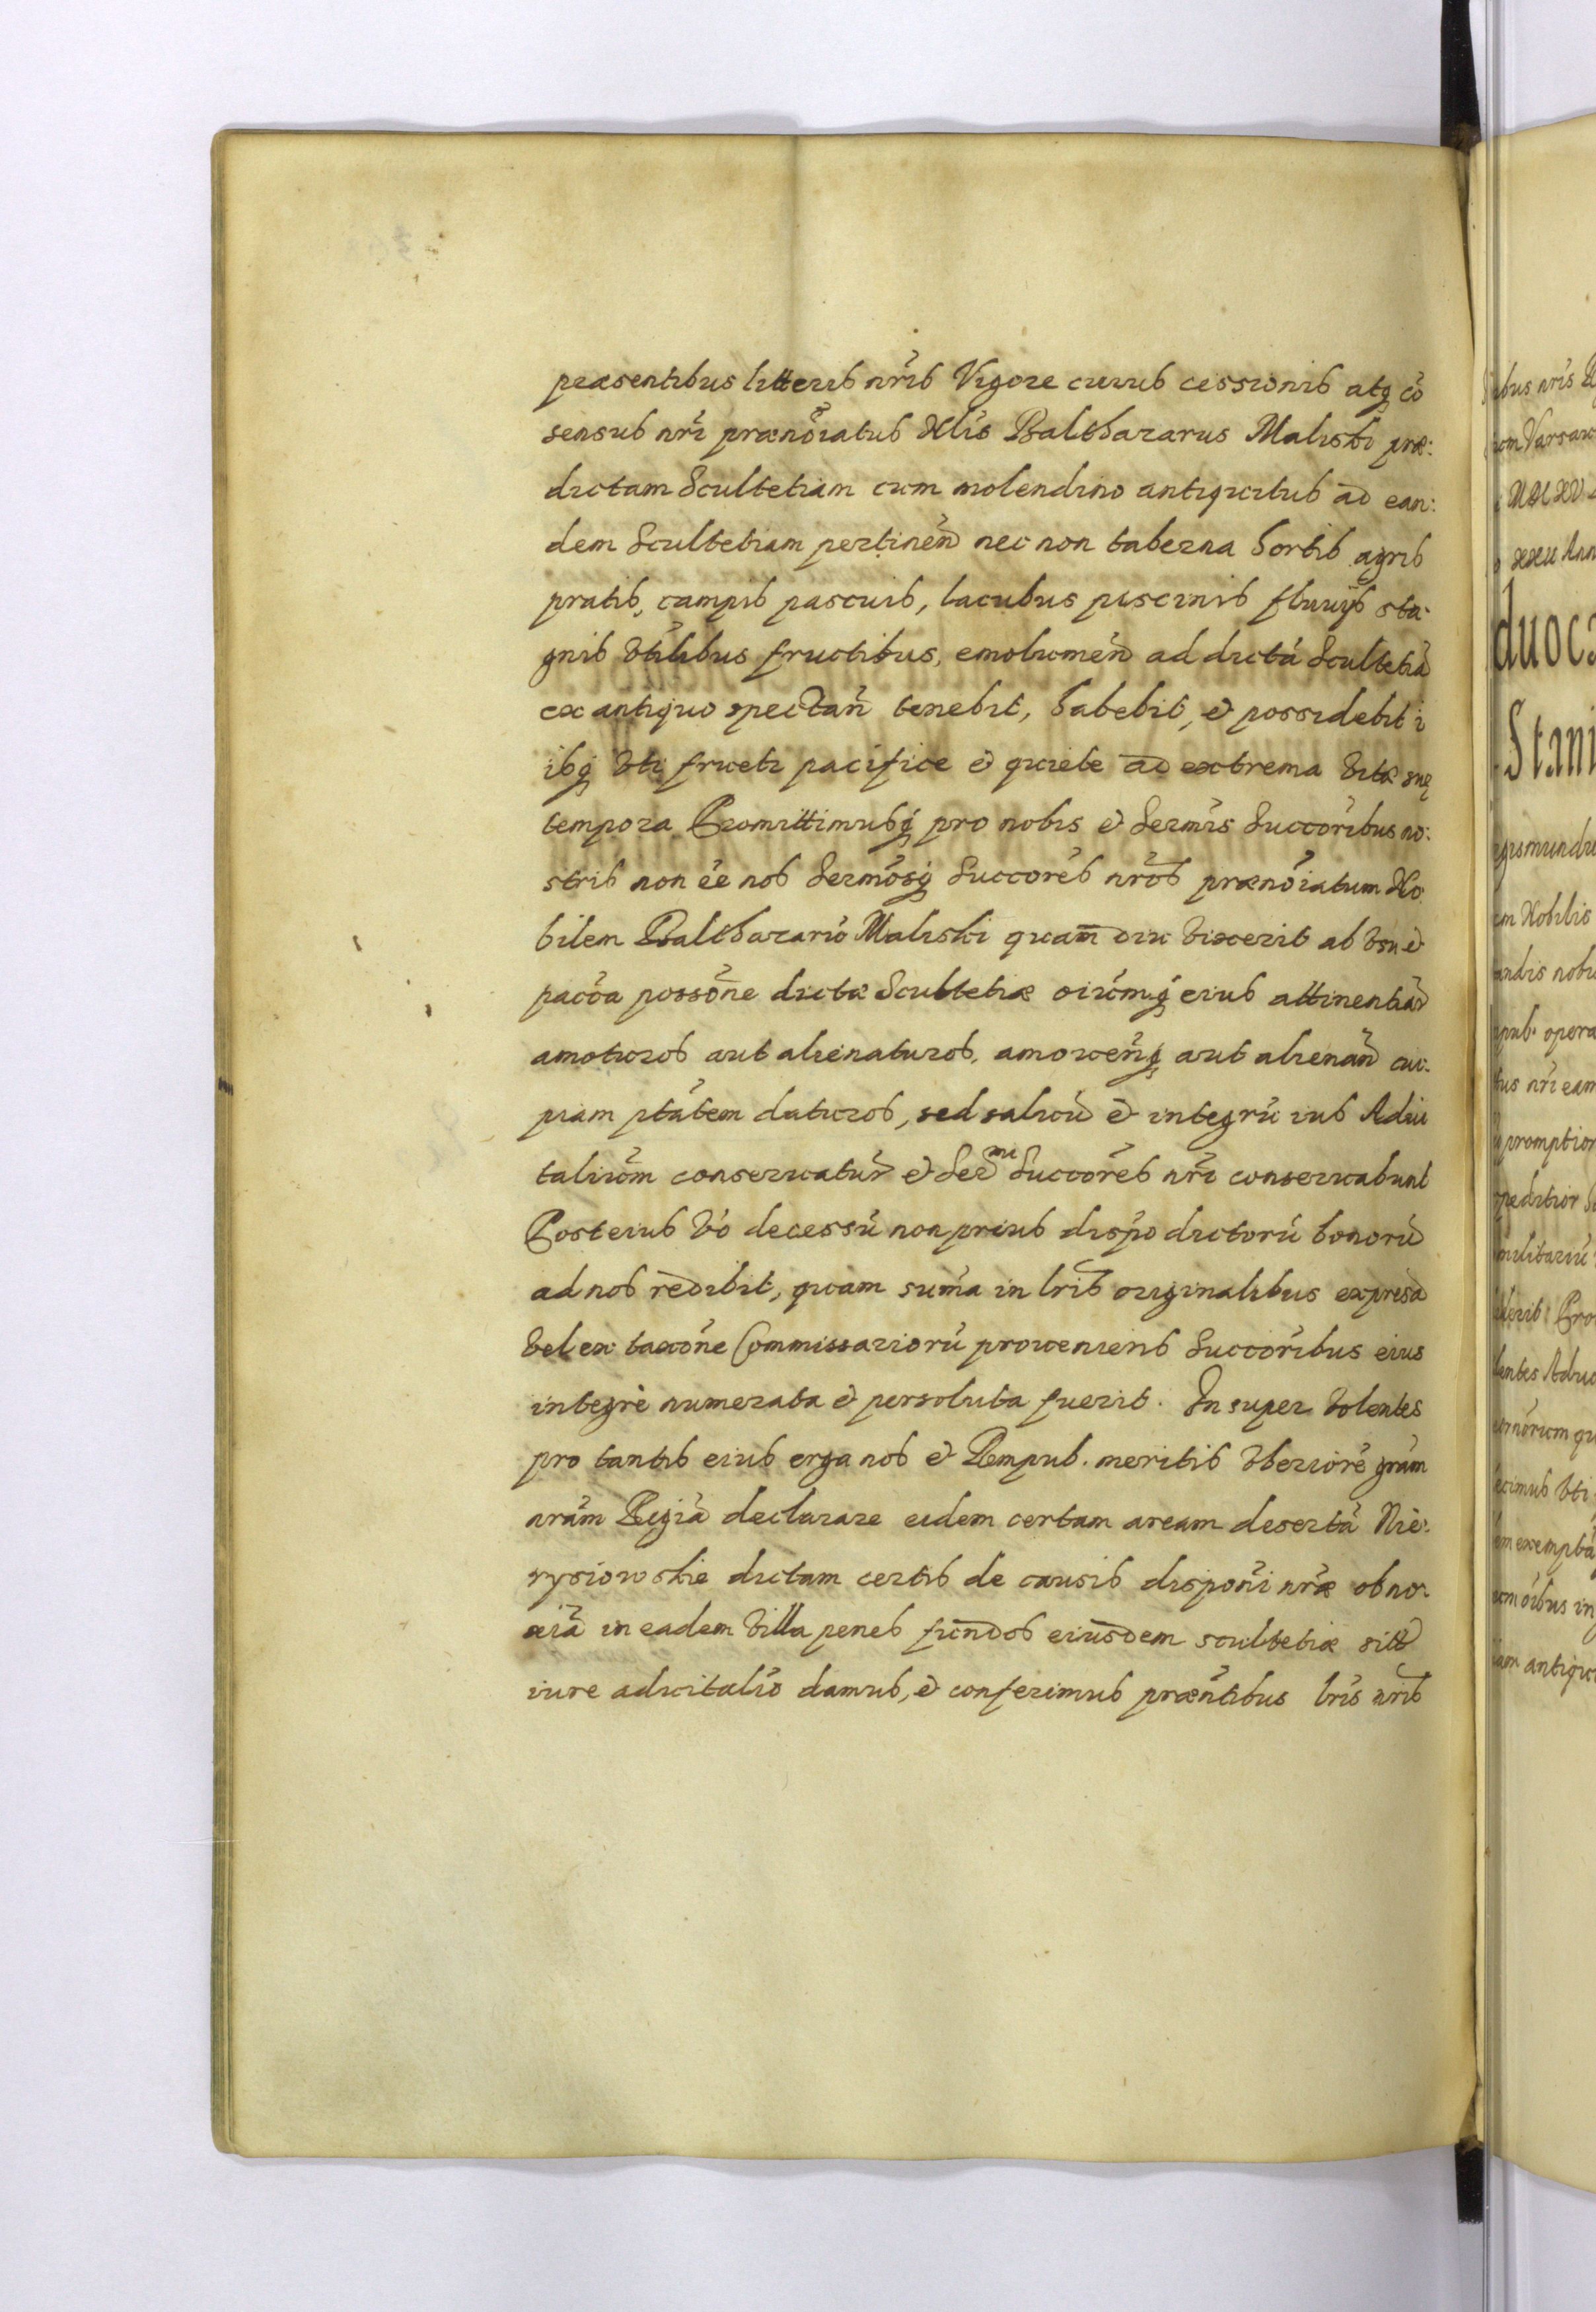 præsentibus litteris nr̃is Vigore cuius cessionis atq̃ cõ
sensus nr̃i prænõiatus Nlis Balthazarus Maliski præ:
dictam Scultetiam cum molendino antiquitus ad ean:
dem Scultetiam pertineñ nec non taberna hortis agris
pratis, campis pascuis, lacubus piscinis fluuijs sta:
gnis vtilibus fructibus, emolumeñ ad dictã Scultetiã
ex antiquo spectañ tenebit, habebit, et possidebit i
isq̃ vti frueti pacifice et quiete ad extrema vitæ suę
tempora Promittimusq̃ pro nobis et Serm̃is Succõribus no:
stris non ẽe nos Serm̃osq̃ Succõres nr̃os prænõiatum No
bilem Balthazarũ Maliski quam diu vixerit ab vsu et
pacca possõne dictæ Scultetiæ oium̃q̃ eius attinentiar
amoturos aut alienaturos, amoueñq̃ aut alienañ cui:
piam ptãtem daturos, sed saluũ et integrũ ius Adui
talium̃ conseruatur̃ et Ser^mi Succõres nr̃i conseruabunt
Post eius võ decessũ non prius dispõ dictorũ bonorũ
ad nos redibit, quam sum̃a in lr̃is originalibus expresã
vel ex taxõne Commissariorũ proueniens Succõribus eius
integrè numerata et persoluta fuerit. In super volentes
pro tantis eius erga nos et Rempub. meritis vberiorẽ gram̃
nr̃am Regiã declarare eidem certam aream desertã Nie:
rysiowskie dictam certis de causis disponi nr̃æ obno:
xiã in eadem villa penes fundos eiusdem scultetiæ sitt
iure aduitalio damus, et conferimus præñtibus lr̃is nr̃is